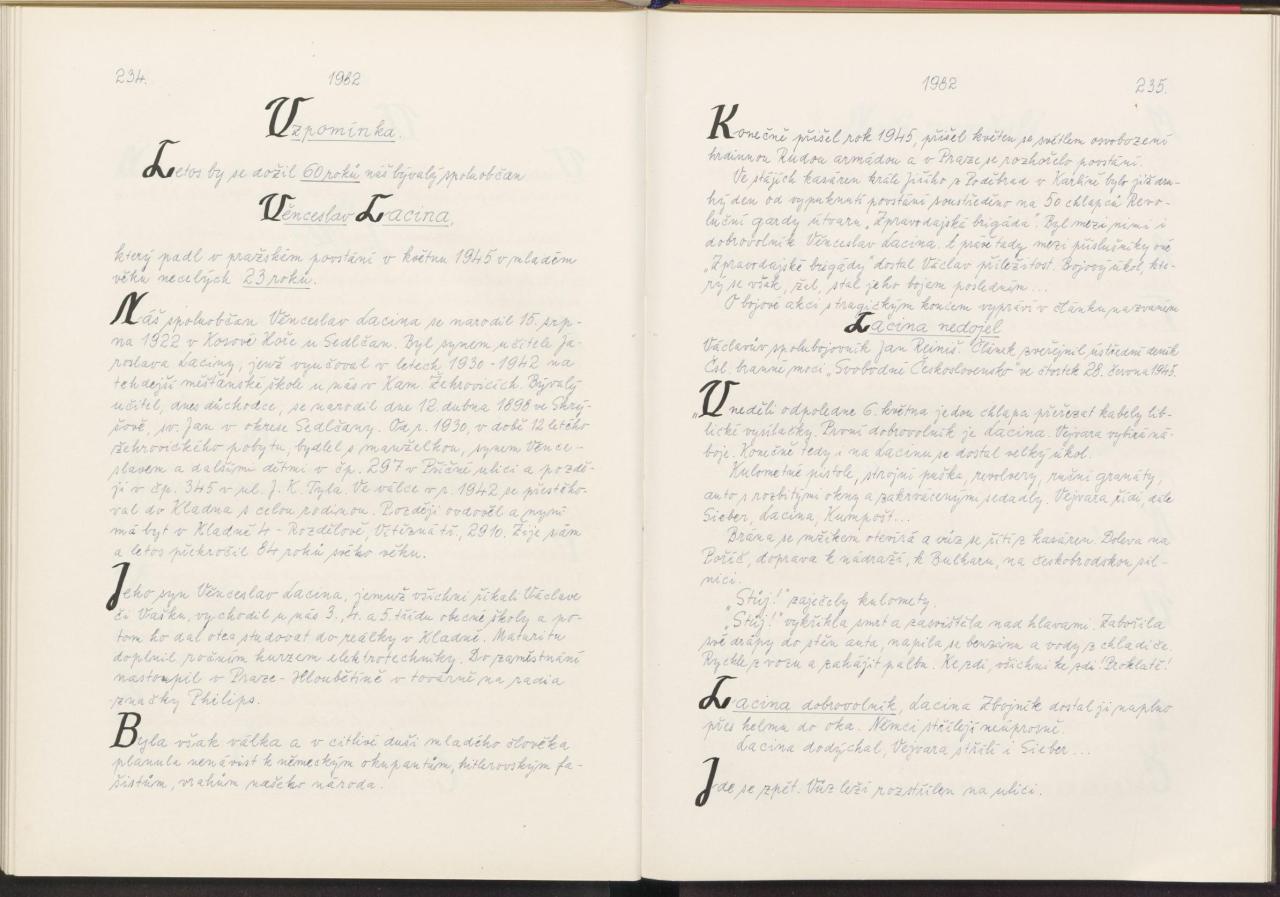 234.
1982
Vzpomínka.
Letos by se dožil 60 roků náš bývalý spoluobčan
Věnceslav Lacina,
který padl v pražském povstání v květnu 1945 v mladém
věku necelých 23 roků.
Náš spoluobčan Věnceslav Lacina se narodil 15. srp-
na 1922 v Kosově Hoře u Sedlčan. Byl synem učitele Ja-
roslava Laciny, jenž vyučoval v letech 1930-1942 na
tehdejší měšťanské škole u nás v Kam. Žehrovicích. Bývalý
učitel, dnes důchodce, se narodil dne 12. dubna 1898 ve Skrý-
šově, sv. Jan v okrese Sedlčany. Od r. 1930, v době 12 letého
žehrovického pobytu, bydlel s manželkou, synem Věnce-
slavem a dalšími dětmi v čp. 297 v Příčné ulici a pozdě-
ji v čp. 345 v ul. J. K. Tyla. Ve válce v r. 1942 se přestěho-
val do Kladna s celou rodinou. Později ovdověl a nyní
má byt v Kladně 4 - Rozdělově, Vítězná tř. 2910. Žije sám
a letos překročil 84 roků svého věku.
Jeho syn Věnceslav Lacina, jemuž všichni říkali Václave
či Vašku, vychodil u nás 3., 4. a 5. třídu obecné školy a po-
tom ho dal otec studovat do reálky v Kladně. Maturitu
doplnil ročním kurzem elektrotechniky. Do zaměstnání
nastoupil v Praze - Hloubětíně v továrně na radia
značky Philips.
Byla však válka a v citlivé duši mladého člověka
planula nenávist k německým okupantům, hitlerovským fa-
šistům, vrahům našeho národa.
1982
235.
Konečně přišel rok 1945, přišel květen se světlem osvobození
hrdinnou Rudou armádou a v Praze se rozhořelo povstání.
Ve stájích kasáren krále Jiřího z Poděbrad v Karlíně bylo již dru-
hý den od vypuknutí povstání soustředěno na 50 chlapců Revo-
luční gardy útvaru „Zpravodajská brigáda". Byl mezi nimi i
dobrovolník Věnceslav Lacina. A právě tady mezi příslušníky oné
„Zpravodajské brigády" dostal Václav příležitost. Bojový úkol, kte-
rý se však, žel, stal jeho bojem posledním...
O bojové akci s tragickým koncem vypráví v článku nazvaném
Lacina nedojel
Václavův spolubojovník Jan Reiniš. Článek zveřejnil ústřední deník
Čsl. branné moci „Svobodné Československo" ve čtvrtek 28. června 1945.
„V neděli odpoledne 6. května jedou chlapa přeřezat kabely lib-
lické vysílačky. První dobrovolník je Lacina. Vejvara vybírá ná-
boje. Konečně tedy i na Lacinu se dostal velký úkol.
Kulometné pistole, strojní puška, revolvery, ruční granáty,
auto s rozbitými okny a zakrvácenými sedadly. Vejvara řídí, dále
Sieber, Lacina, Kumpošt...
Brána se mžikem otevírá a vůz se řítí z kasáren. Doleva na
Poříč, doprava k nádraží, k Bulharu, na českobrodskou sil-
nici.
„Stůj!" zaječely kulomety.
„Stůj!" vykřikla smrt a zasvištěla nad hlavami. Zabořila
své drápy do stěn auta, napila se benzinu a vody z chladiče.
Rychle z vozu a zahájit palbu. Ke zdi, všichni ke zdi! Proklatě!
Lacina dobrovolník, Lacina Zbojník dostal ji naplno
přes helmu do oka. Němci střílejí neúprosně.
Lacina dodýchal, Vejvara střílí i Sieber...
Jde se zpět. Vůz leží rozstřílen na ulici.